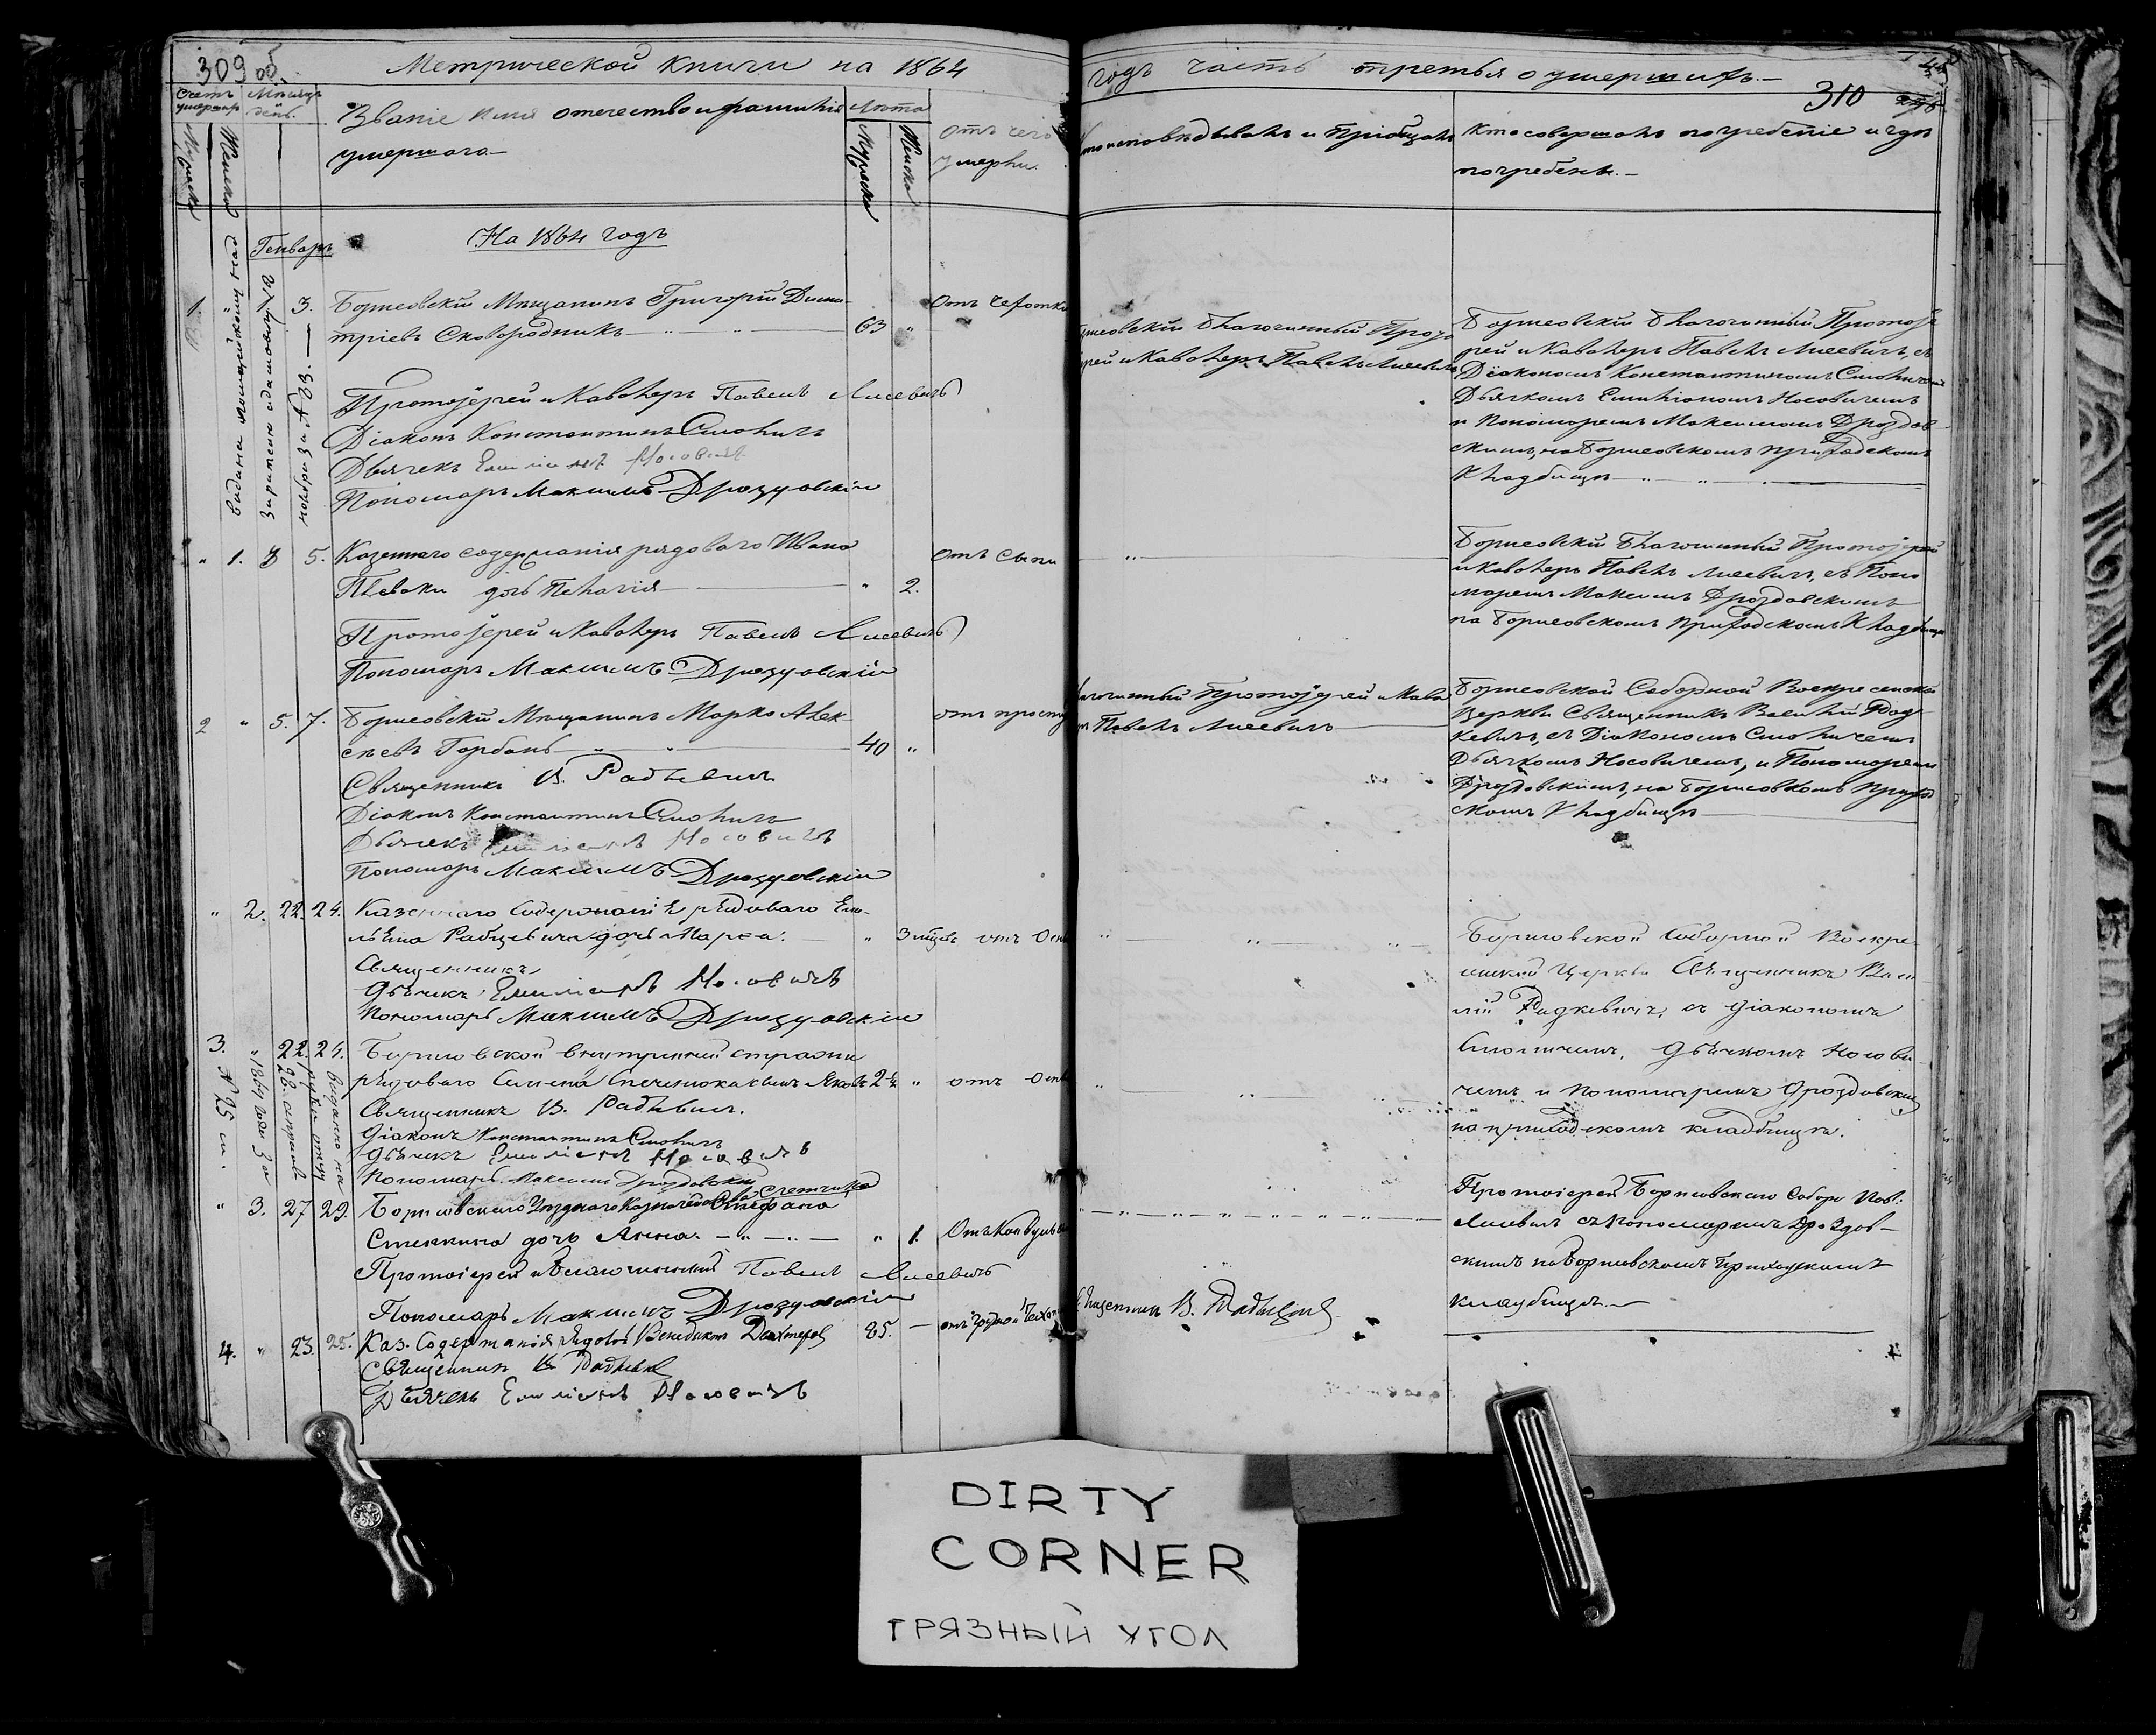 309 об.
Метрической книги на 1864
Счетъ умершихъ
Мѣсяцъ день.
Мужеска
Женска
Званіе имя отечество и фамилія
умершаго
Лѣта
Мужеска
Женска
Отъ чего
умерли.
Генварь
На 1864 годъ
1. " 1 3. Борисовскій Мѣщанинъ Григорій Дими-
тріевъ Сковородникъ 63 "
Отъ чехотки
Протоіерей и Кавалеръ Павелъ Лисевичъ
Діаконъ Константинъ Смоличъ
Дьячекъ Емиліанъ Носовичъ
Пономарь Максимъ Дроздовскій
" 1. 3 5. Казеннаго содержанія рядоваго Ивана
дочь Пелагія " 2.
отъ сыпи
Протоіерей и Кавалеръ Павелъ Лисевичъ
Пономарь Максимъ Дроздовскій
2 " 5. 7. Борисовскій Мѣщанинъ Марко Алек-
сѣевъ Горбань 40 "
отъ просту
Священникъ В. Радкевичъ
Діаконъ Константинъ Смоличъ
Дьячекъ Емиліанъ Носовичъ
Пономарь Максимъ Дроздовскій
" 2. 22. 24. Казеннаго содержанія рядоваго Еме-
льяна Рабцевича дочь Марѳа. " 3 мѣсяц. отъ Оспы
Священникъ
Дьячекъ Емиліанъ Носовичъ
Пономарь Максимъ Дроздовскій
3. 22. 24. Борисовской внутренней стражи
рядоваго Семена сынъ Яковъ 2½ " отъ Оспы
Священникъ В. Радкевичъ.
Діаконъ Константинъ Смоличъ
Дьячекъ Емиліанъ Носовичъ
Пономарь Максимъ Дроздовскій
" 3. 27 29. Борисовскаго Уѣзднаго Казначейства счетчика Стефана
дочь Анна. " 1. Отъ Конвульсіи
Протоіерей и Благочинный Павелъ Лисевичъ
Пономарь Максимъ Дроздовскій
4. " 23. 25. Каз. Содержанія рядовъ Венедиктъ 85. — отъ грудной чехот
Священникъ В. Радкевичъ
Дьячекъ Емиліанъ Носовичъ
годъ часть третья о умершихъ.
310
Кто исповѣдывалъ и пріобщалъ
Кто совершалъ погребеніе и гдѣ
погребены.
Борисовскій Благочинный Прото
іерей и Кавалеръ Павелъ Лисевичъ
Борисовскій Благочинный Протоіе
рей и Кавалеръ Павелъ Лисевичъ, съ
Діакономъ Константиномъ Смоличемъ
Дьячкомъ Емиліаномъ Носовичемъ
и Пономаремъ Максимомъ Дроздов
скимъ, на Борисовскомъ приходскомъ
Кладбищѣ
Борисовскій Благочинный Протоіерей
и Кавалеръ Павелъ Лисевичъ, съ Поно
маремъ Максимомъ Дроздовскимъ
на Борисовскомъ приходскомъ Кладбищѣ
Благочинный Протоіерей и Кава
леръ Павелъ Лисевичъ
Борисовской Соборной Воскресенской
Церкви Священникъ Василій Рад
кевичъ, съ Діакономъ Смоличемъ
Дьячкомъ Носовичемъ, и Пономаремъ
Дроздовскимъ, на Борисовскомъ приход
скомъ Кладбищѣ
Борисовской Соборной Воскре-
сенской Церкви Священникъ Васи
лій Радкевичъ, съ Діакономъ
Смоличемъ, Дьячкомъ Носови
чемъ и Пономаремъ Дроздовскимъ
на приходскомъ кладбищѣ.
Протоіерей Борисовскаго Собора Пав.
Лисевичъ съ пономаремъ Дроздов-
скимъ на Борисовскомъ Приходскомъ
кладбищѣ.
Священникъ В. Радкевичъ
DIRTY
CORNER
ГРЯЗНЫЙ УГОЛ